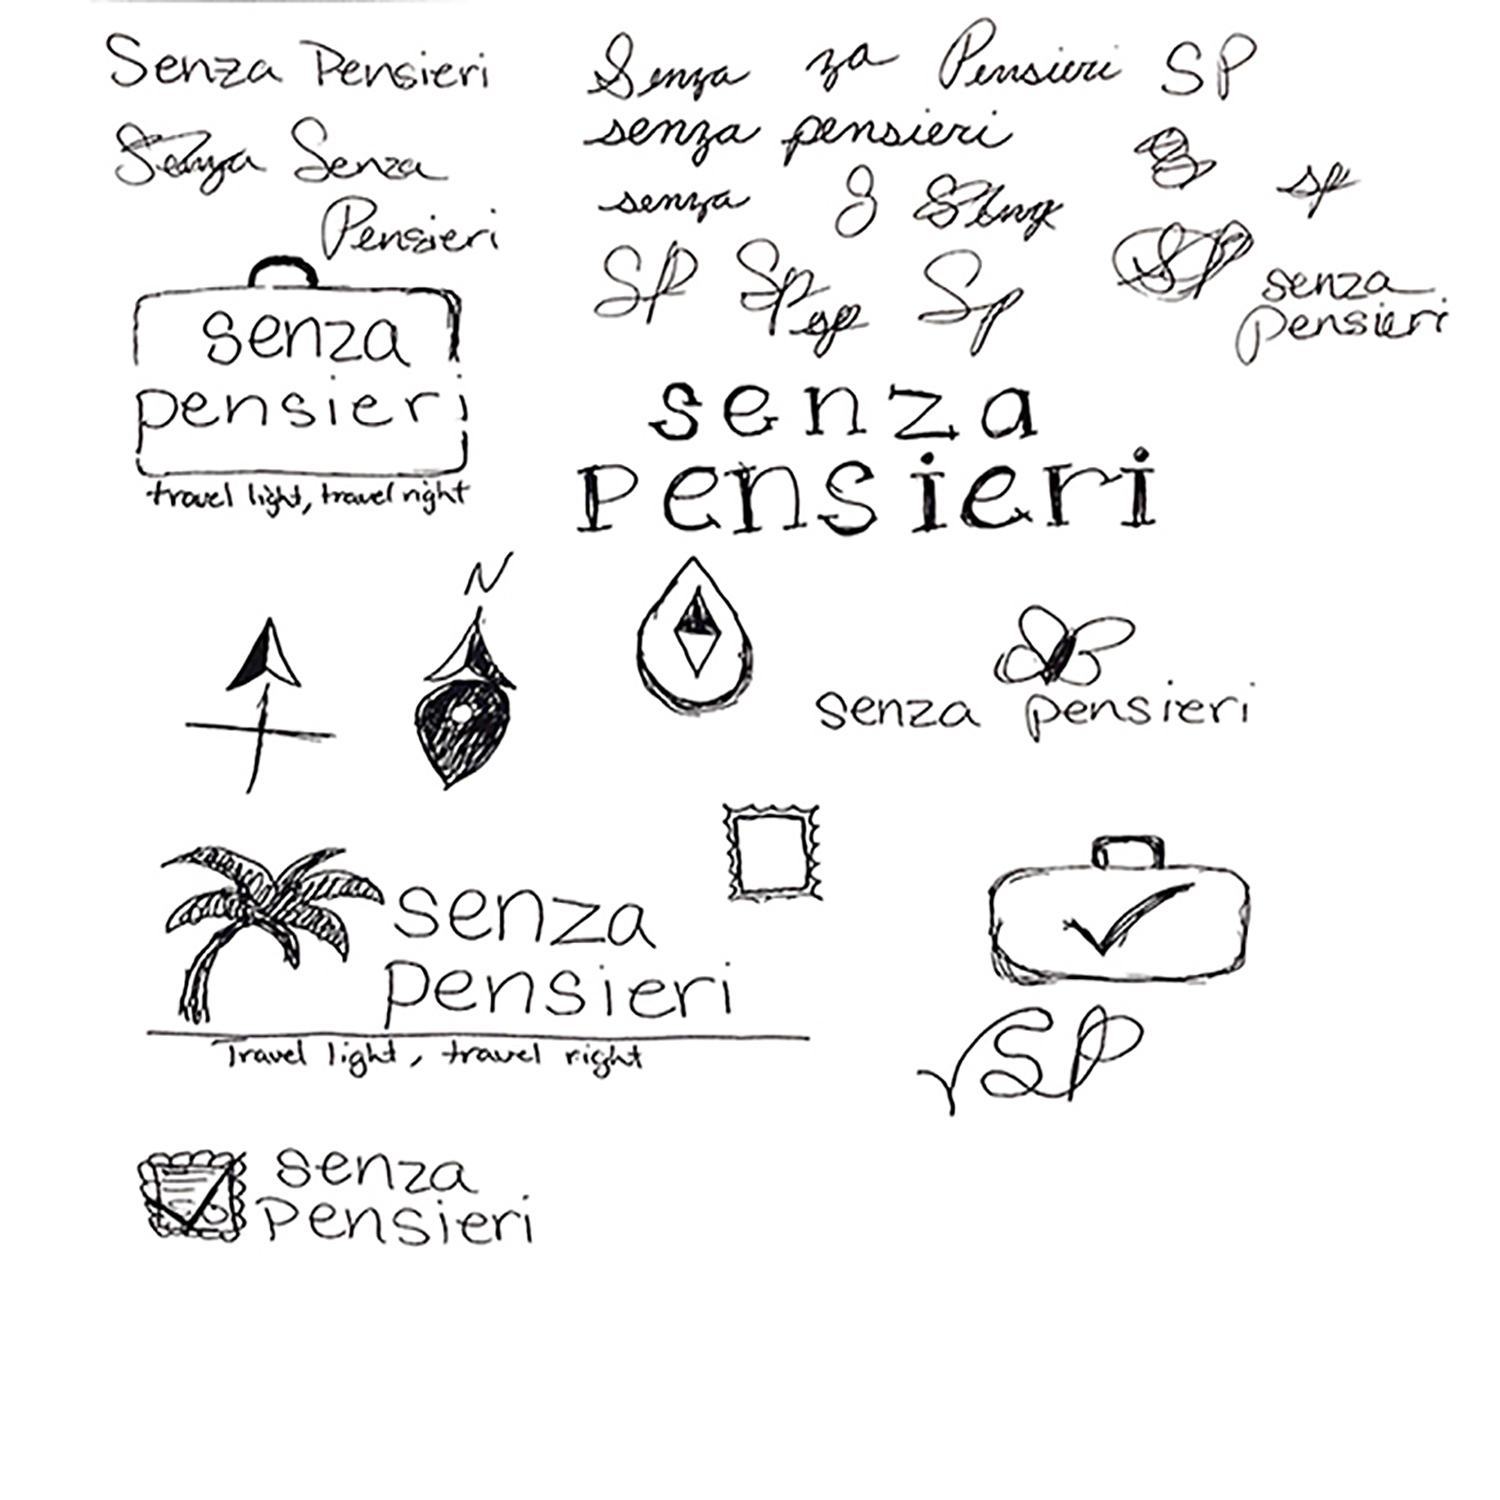 Senza Pensieri
Senza Senza
Pensieri
Senza za Pensieri SP
senza pensieri
senza S Senza
sp
SP Sp sp Sp
SP
senza
pensieri
senza
pensieri
travel light, travel right
senza
pensieri
N
senza pensieri
senza
pensieri
Travel light, travel right
SP
senza
pensieri